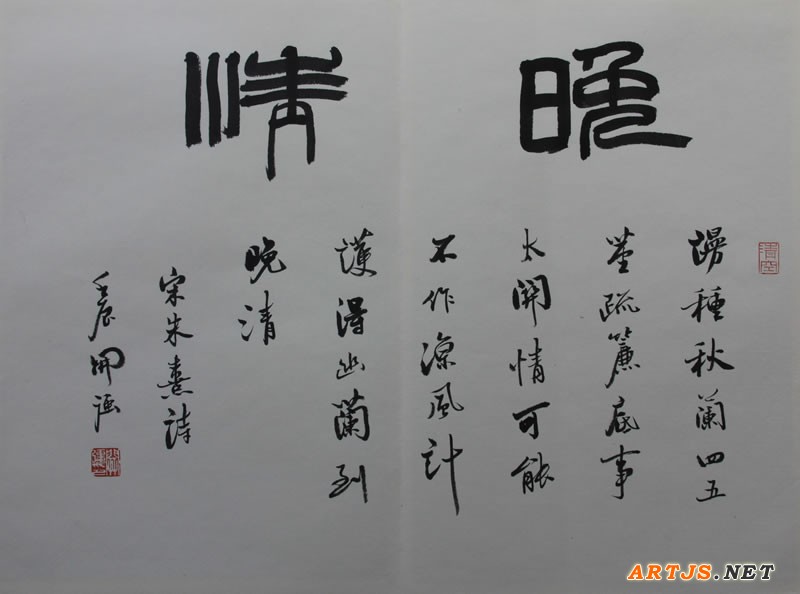 晚清
謾種秋蘭四五
莖疏簾底事
太關情可能
不作涼風計
護得幽蘭到
晚清
宋朱熹詩
壬辰
ARTJS.NET